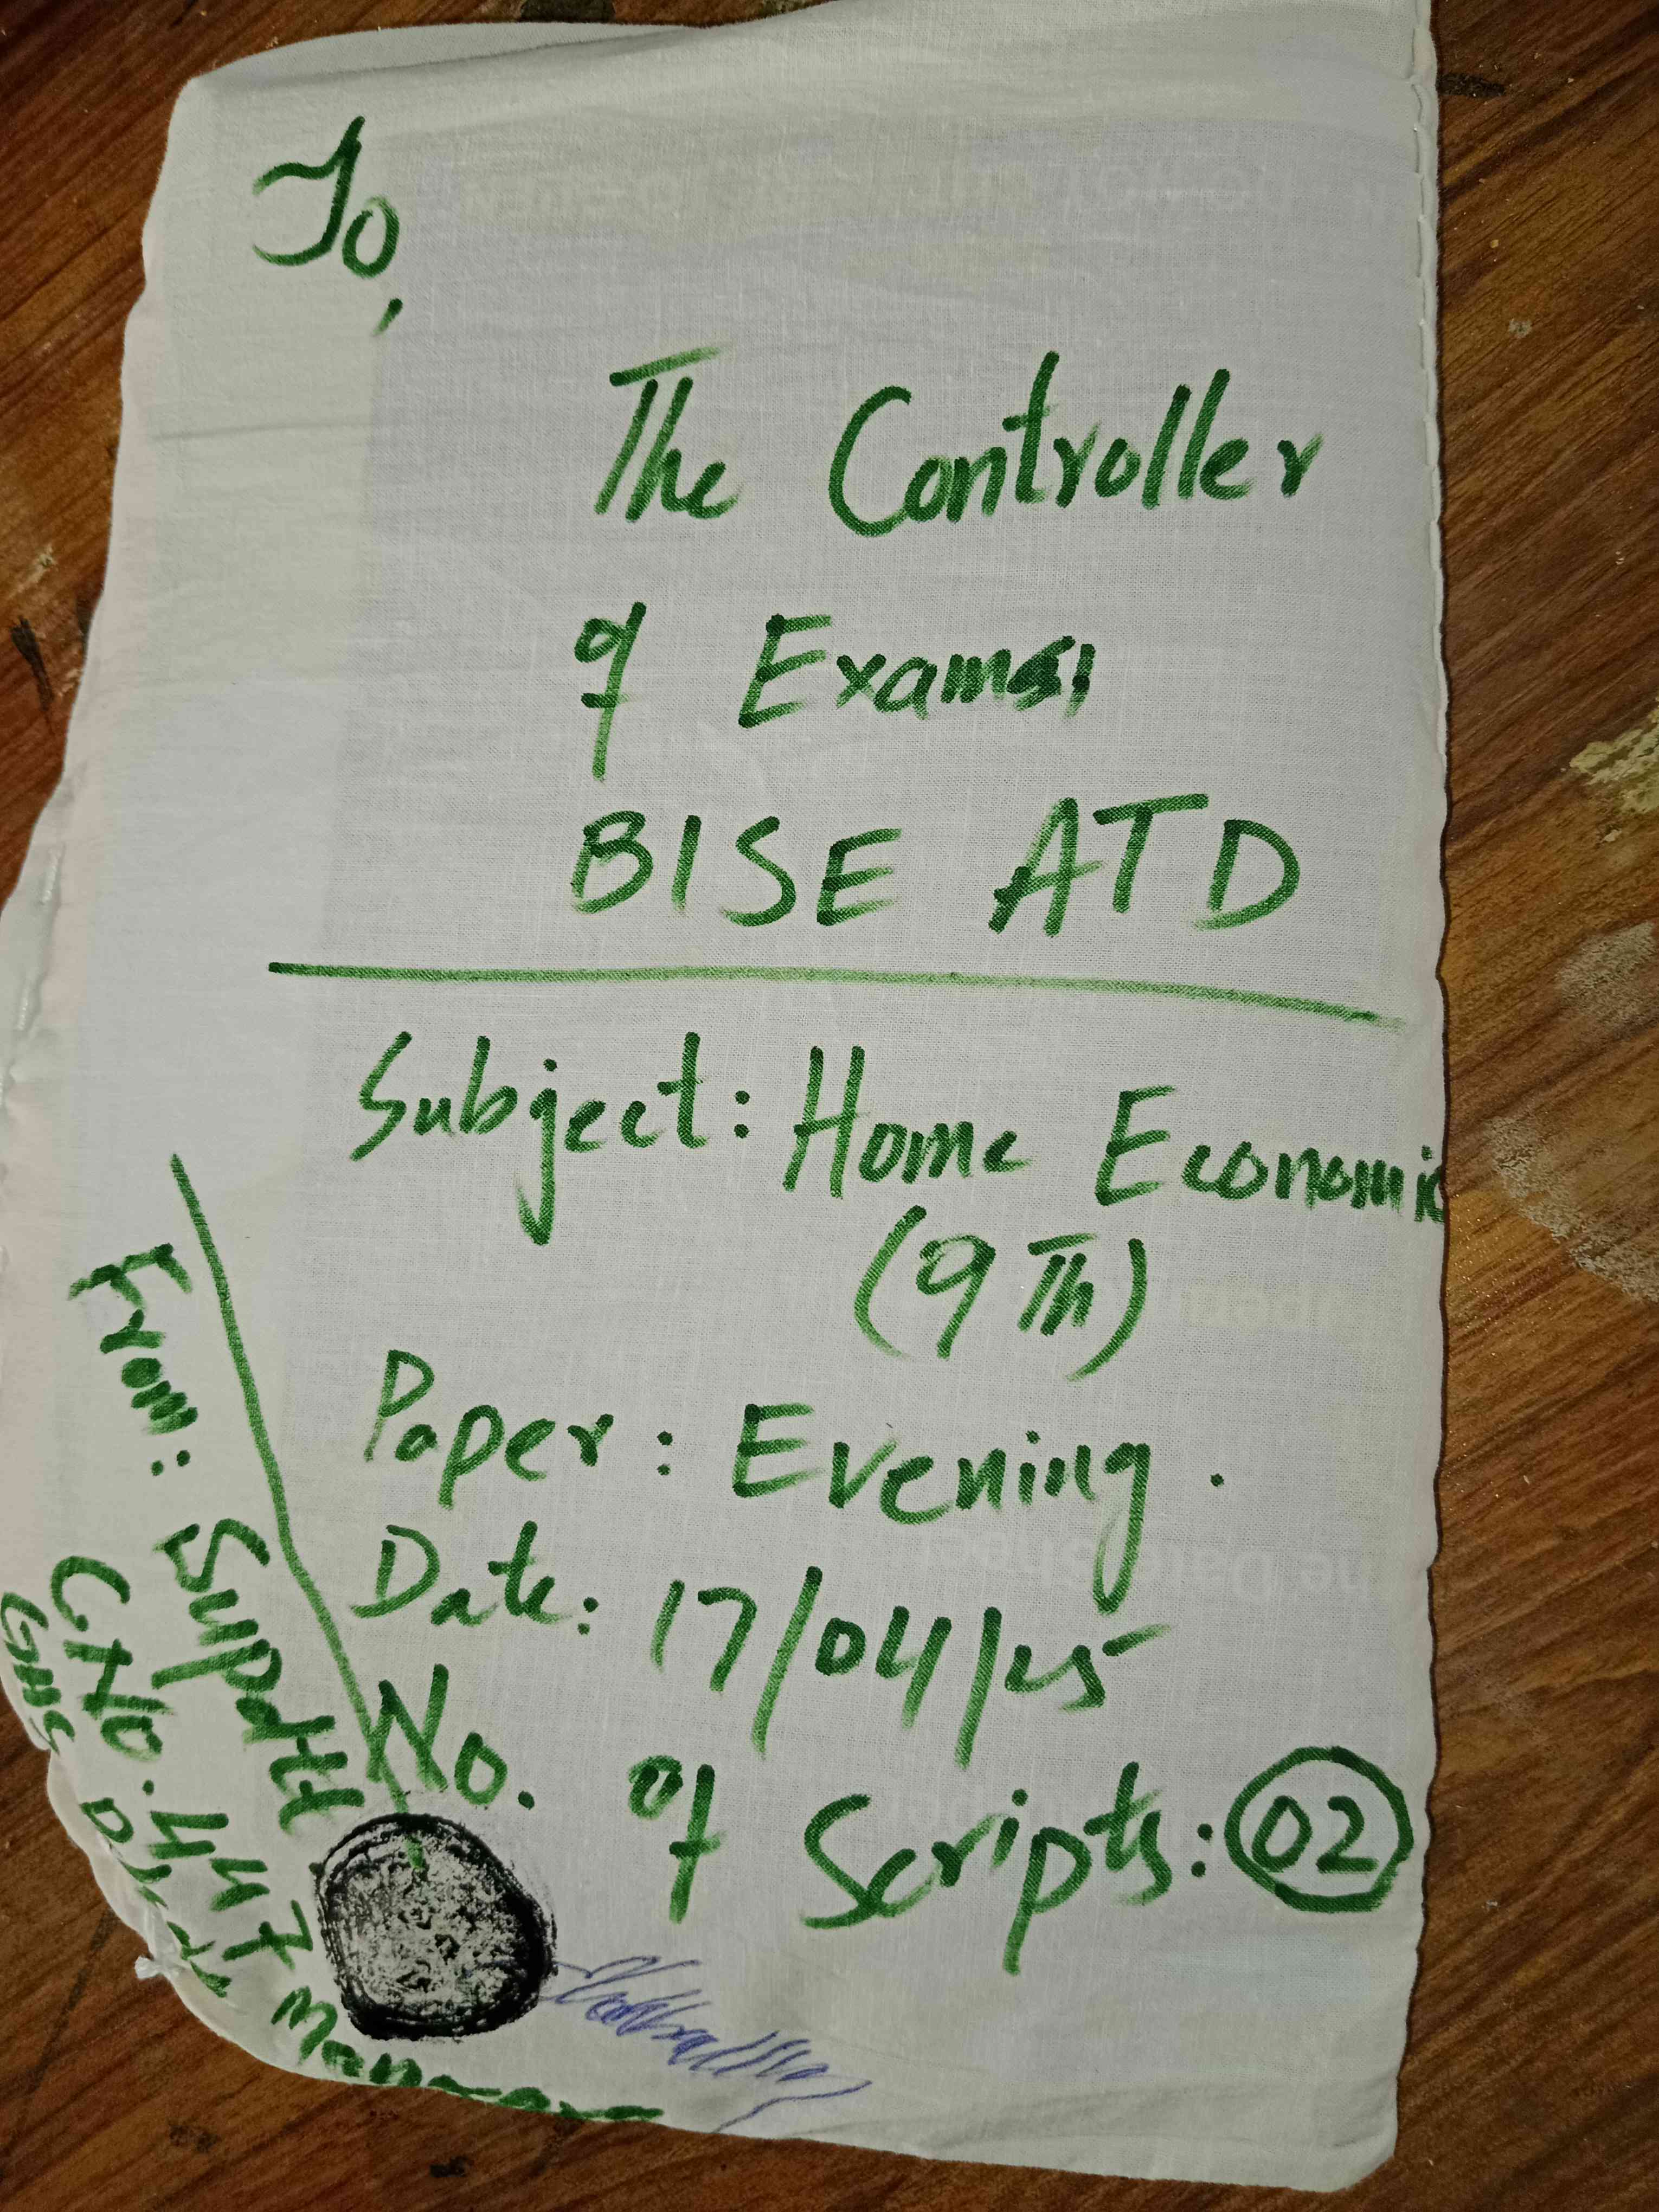 To,
The Controller
of Exams,
BISE ATD
Subject: Home Economic
(9Th)
Paper: Evening.
Date: 17/04/25
No. of Scripts: 02
From: Supdtt
C.No. 447
GHS